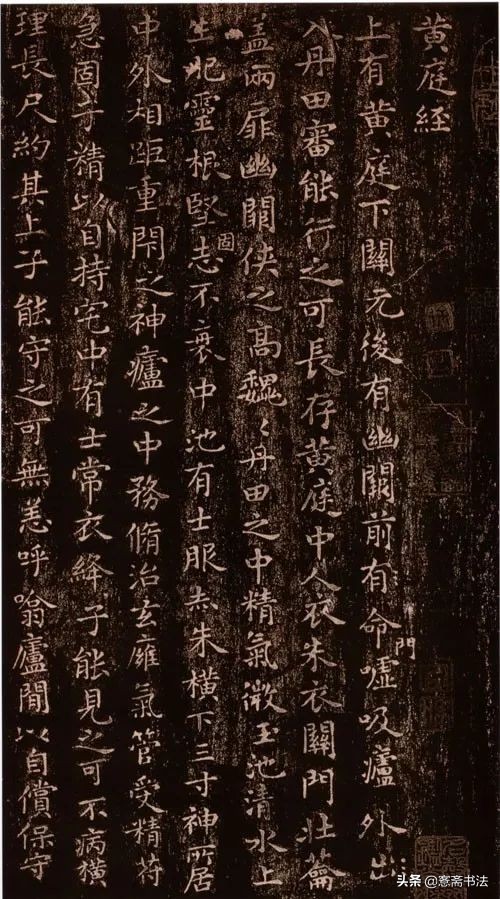 黄庭経
上有黄庭下關元後有幽闕前有命門噓吸廬外出
入丹田審能行之可長存黄庭中人衣朱衣關門壯籥
盖兩扉幽闕俠之髙巍〻丹田之中精氣微玉池清水上
生肥靈根堅固志不衰中池有士服赤朱横下三寸神所居
中外相距重閇之神廬之中務脩治玄廱氣管受精符
急固子精以自持宅中有士常衣絳子能見之可不病横
理長尺約其上子能守之可無恙呼噏廬閒以自償保守
头条 @愙斋书法